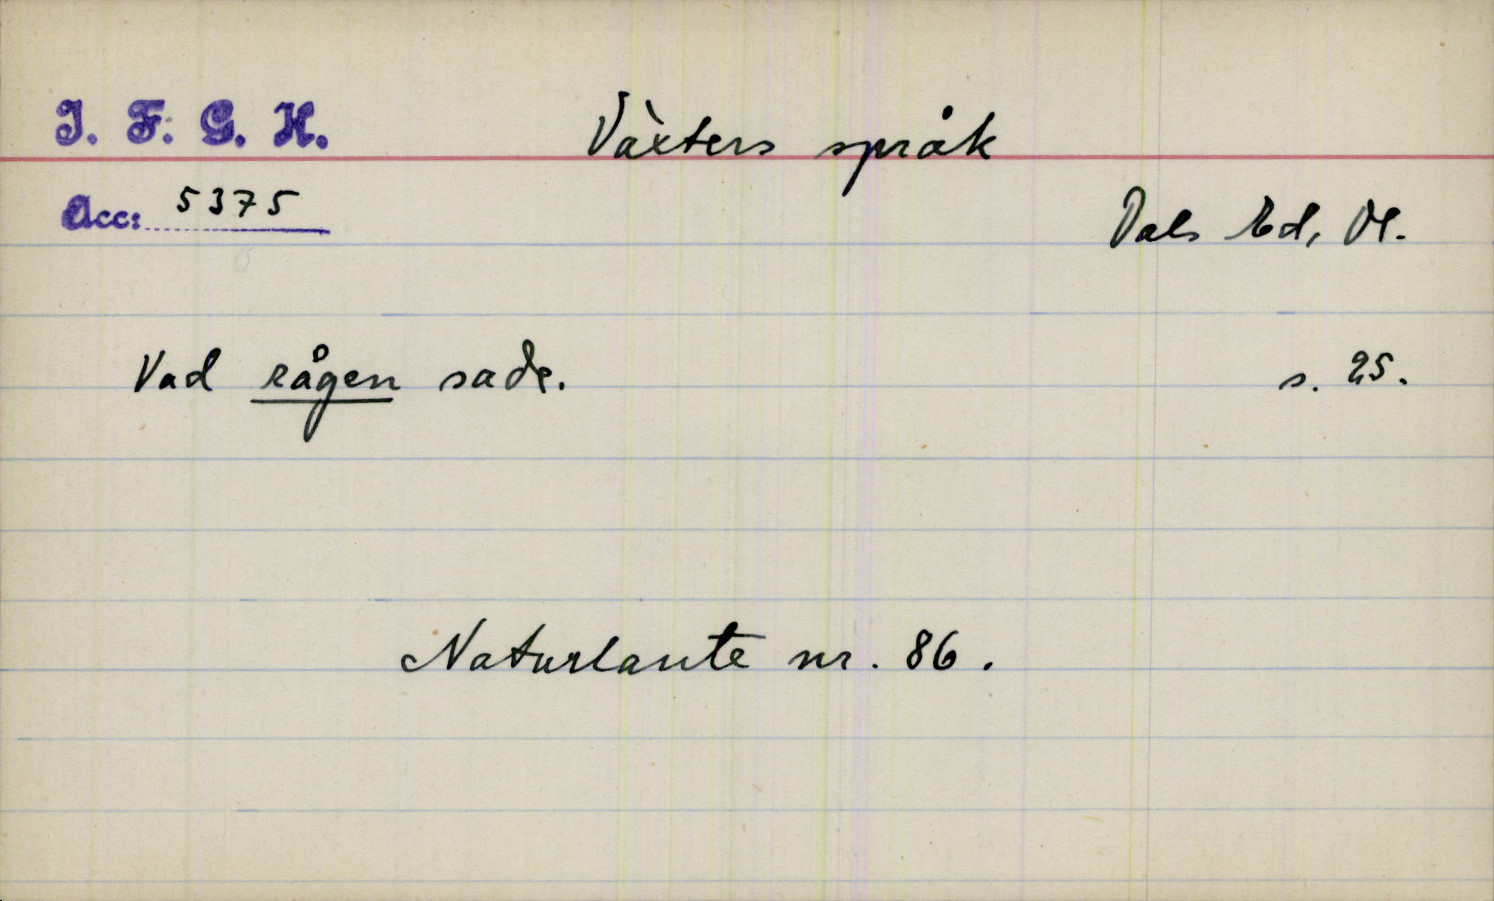 I. F. G. H.
Växters språk
Acc: 5375
Dals Ed, Dl.
Vad rågen sade.
s. 25.
Naturlaute nr. 86.